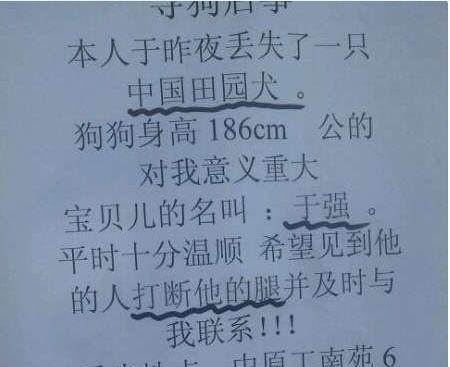 寻狗启事
本人于昨夜丢失了一只
中国田园犬 。
狗狗身高 186cm 公的
对我意义重大
宝贝儿的名叫 : 于强 。
平时十分温顺 希望见到他
的人打断他的腿并及时与
我联系!!!
中原工南苑 6